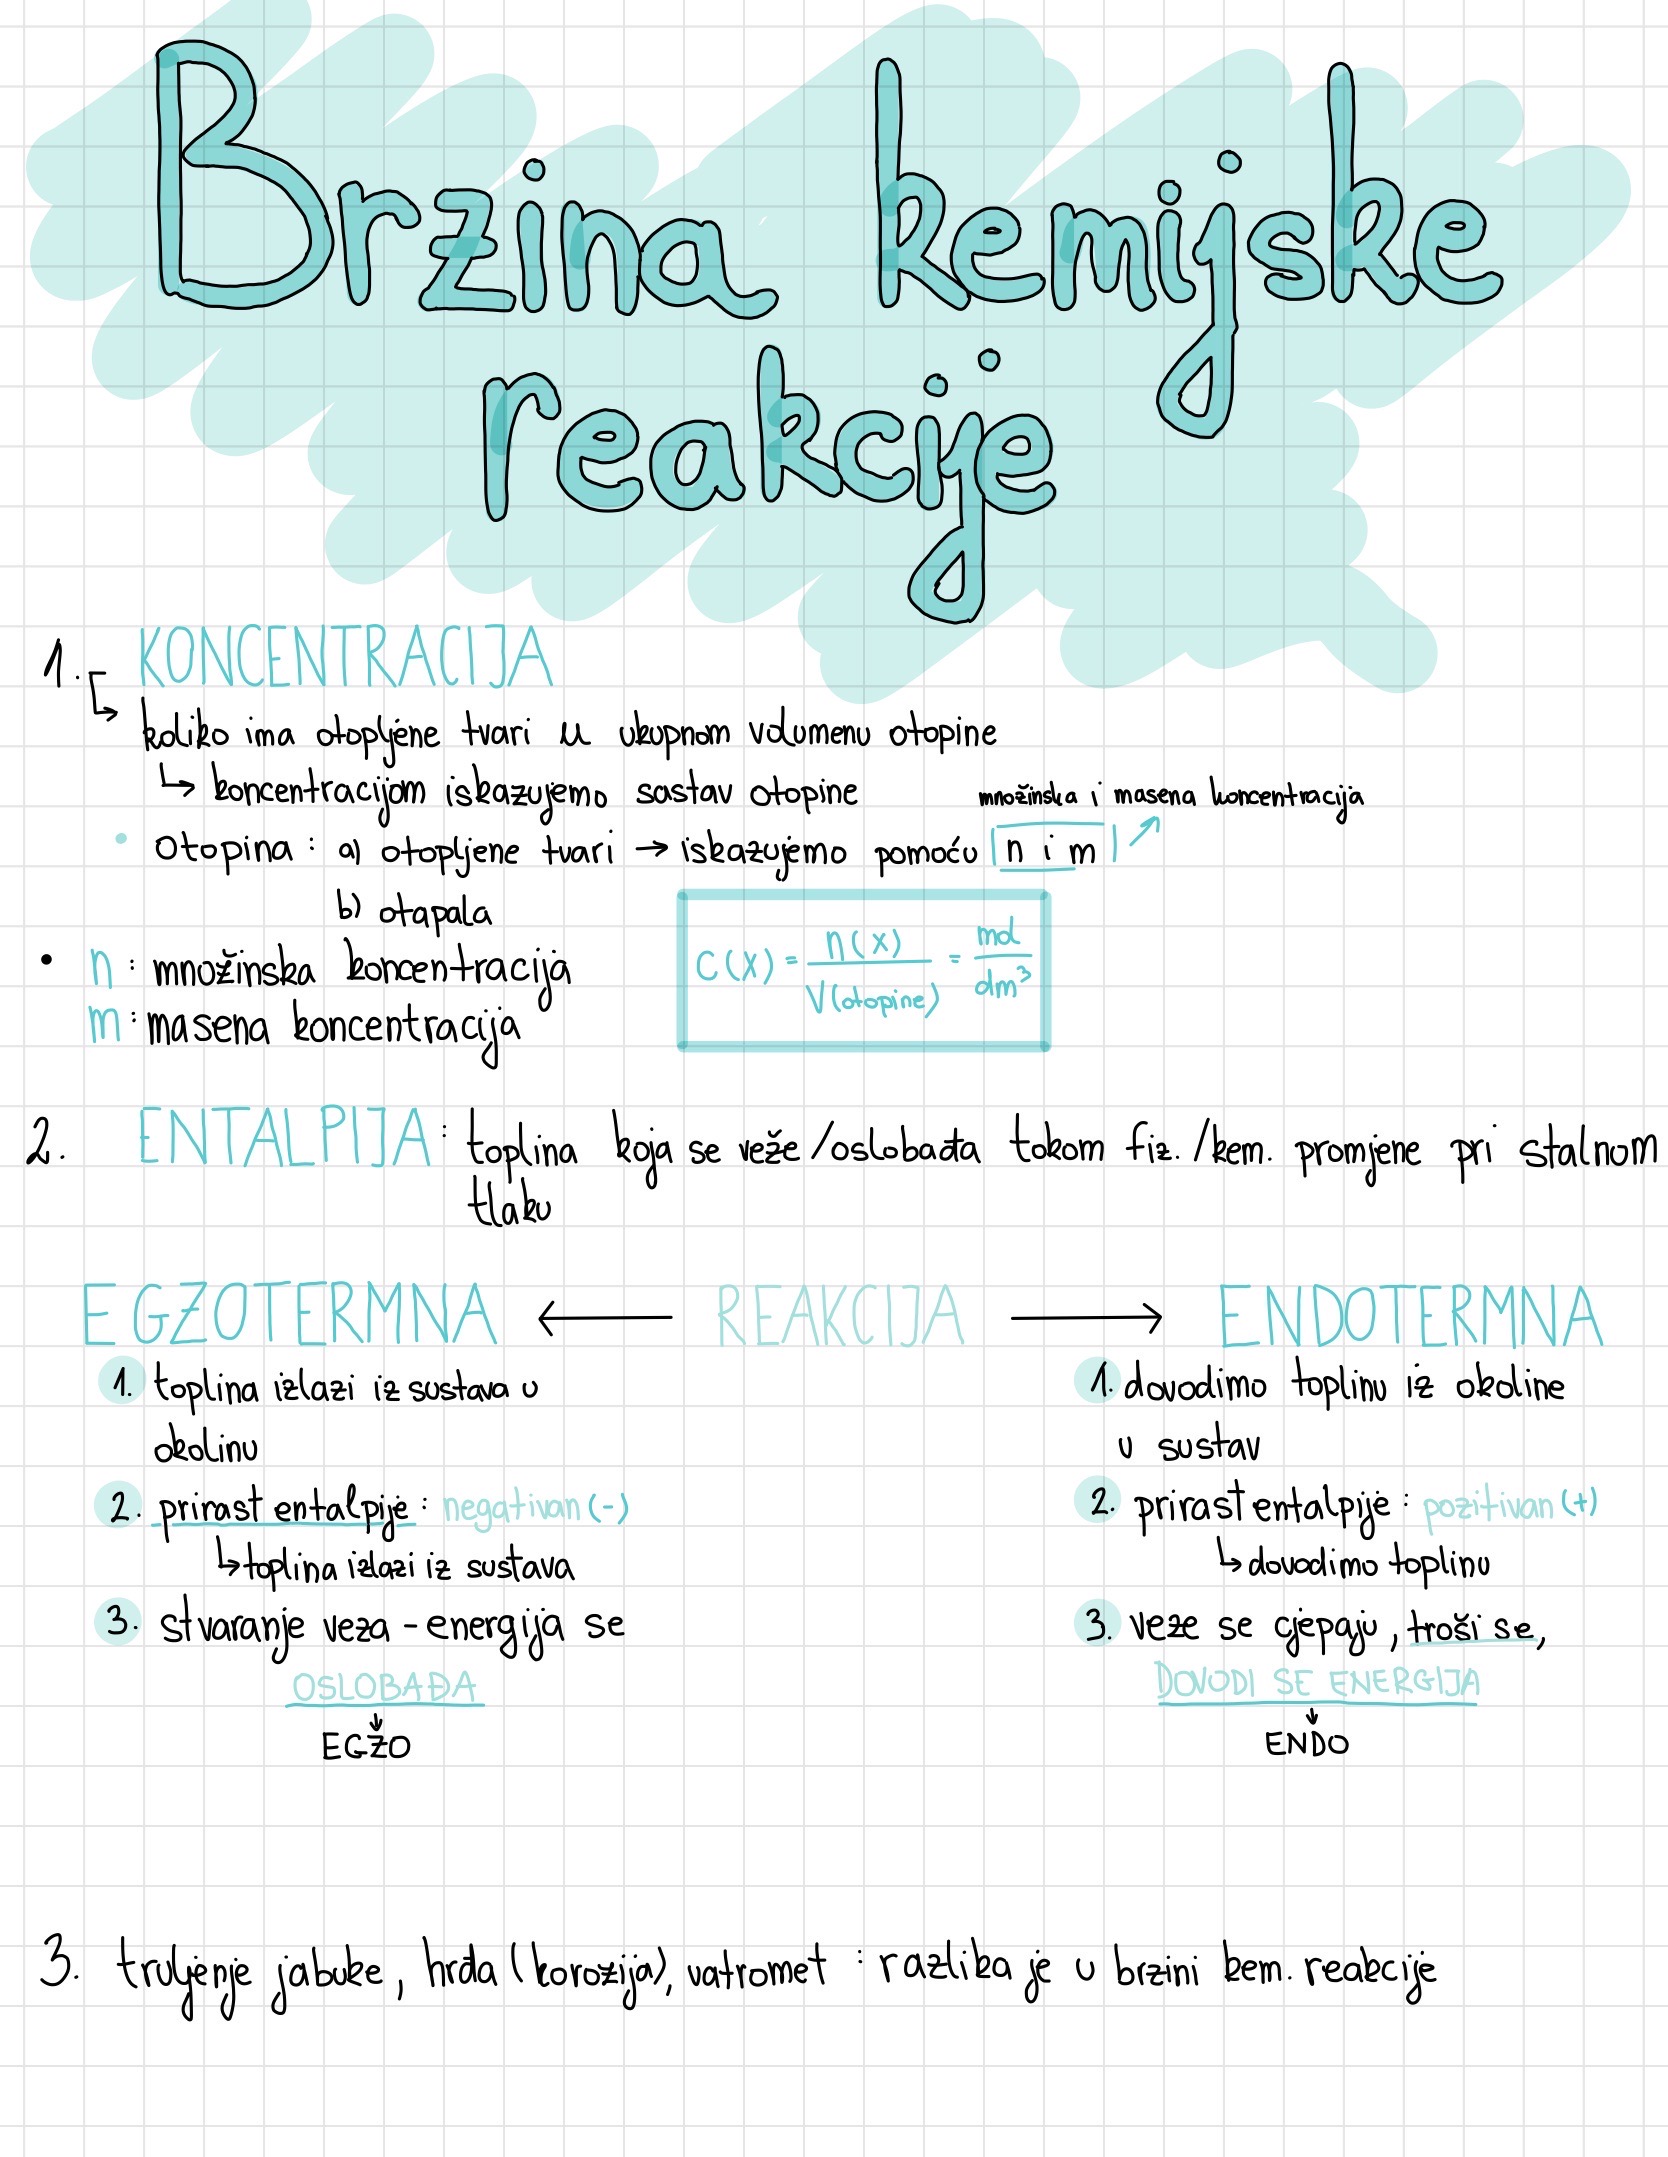 Brzina kemijske
reakcije
1. KONCENTRACIJA
↳ koliko ima otopljene tvari u ukupnom volumenu otopine
↳ koncentracijom iskazujemo sastav otopine
množinska i masena koncentracija
• Otopina: a) otopljene tvari → iskazujemo pomoću n i m
b) otapala
• n: množinska koncentracija
m: masena koncentracija
c(X) = n(X) / V(otopine) = mol / dm³
2. ENTALPIJA: toplina koja se veže/oslobađa tokom fiz./kem. promjene pri stalnom
tlaku
EGZOTERMNA ← REAKCIJA → ENDOTERMNA
1. toplina izlazi iz sustava u
okolinu
2. prirast entalpije: negativan (-)
↳ toplina izlazi iz sustava
3. stvaranje veza - energija se
OSLOBAĐA
↓
EGZO
1. dovodimo toplinu iz okoline
u sustav
2. prirast entalpije: pozitivan (+)
↳ dovodimo toplinu
3. veze se cjepaju, troši se,
DOVODI SE ENERGIJA
↓
ENDO
3. truljenje jabuke, hrđa (korozija), vatromet: razlika je u brzini kem. reakcije